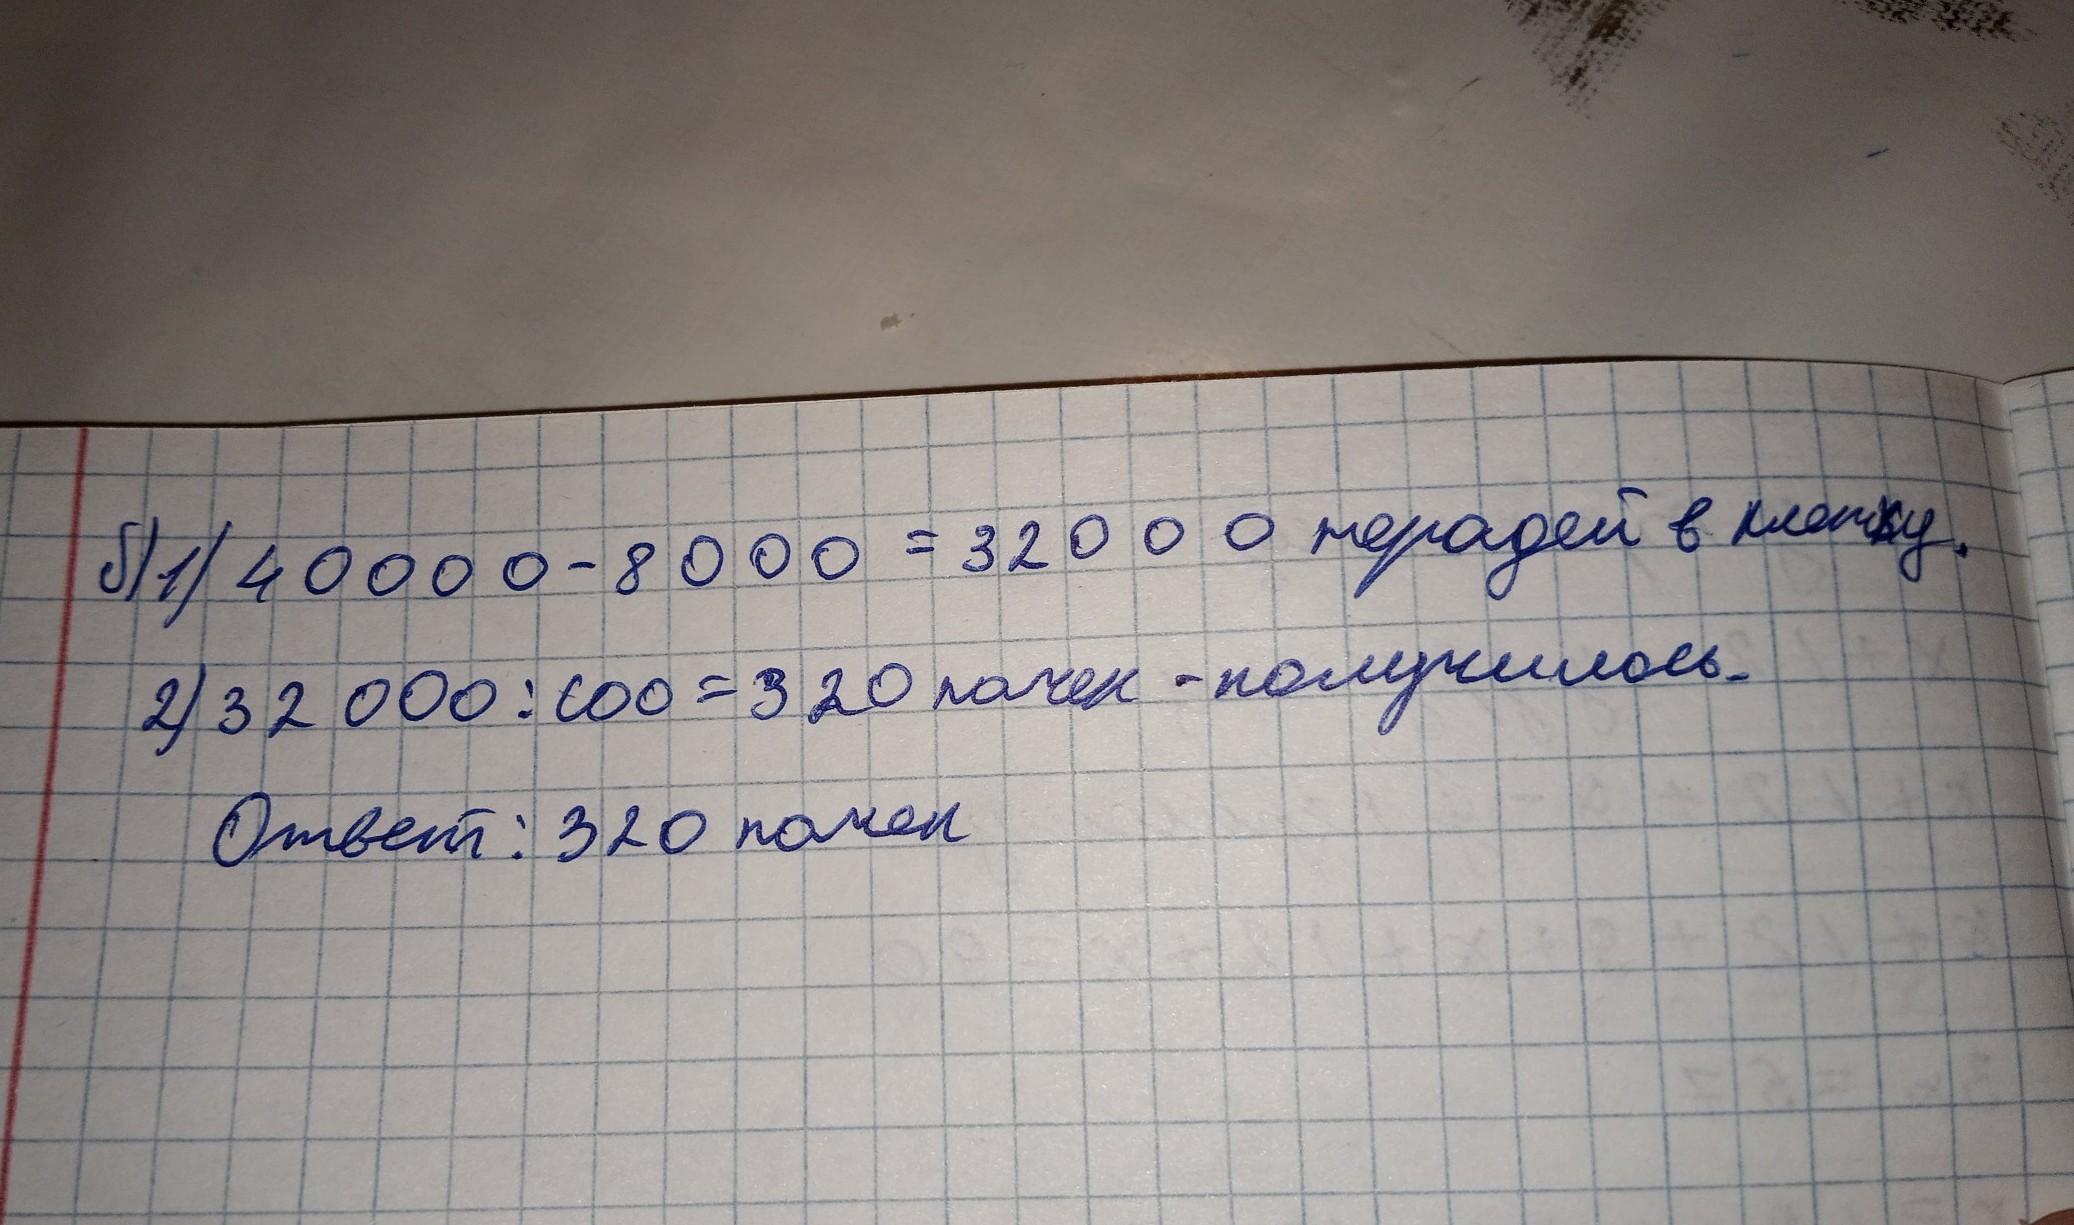 б) 1) 40000-8000=32000 терадей в клетку.
2) 32000:100=320 пачек - получилось.
Ответ: 320 пачек